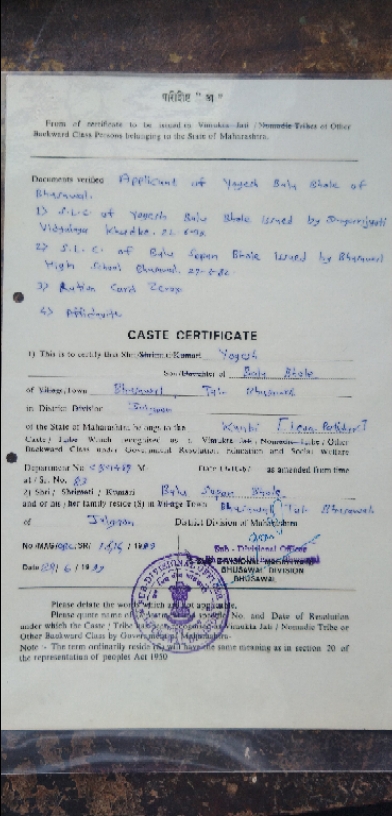 परिशिष्ट " अ "
From of certificate to be issued to Vimukta Jati / Nomadic Tribes of Other
Backward Class Persons belonging to the State of Maharashtra.
Documents verified Applicant of Yogesh Balu Bhole of
Bhusawal.
1) S.L.C of Yogesh Balu Bhole Issued by
Vidyalaya
2) S.L.C. of Balu Sopan Bhole Issued by Bhusawal
High School Bhusawal.
3) Ration Card Zerox
4) Affidavite
CASTE CERTIFICATE
1) This is to certify that Shri/Shrimati/Kumari Yogesh
Son/Daughter of Balu Bhole
of Village/Town Bhusawal Tal. Bhusawal
in District Division Jalgaon
of the State of Maharashtra belongs to the Kunbi
Caste / Tribe Which recognised as a Vimukta Jati / Nomadic Tribe / Other
Backward Class under Government Resolution Education and Social Welfare
Department No. as amended from time
at / Sr. No. 83
2) Shri / Shrimati / Kumari Balu Sopan Bhole
and or his / her family reside (S) in Village Town Bhusawal Tal Bhusawal
of Jalgaon District Division of Maharashtra
No /MAG/ /SR/ / 19
Sub - Divisional Officer
BHUSAWAL DIVISION
BHUSAWAL
Date / 6 / 19
Please delate the words which are not applicable.
Please quote name of No. and Date of Resolution
under which the Caste / Tribe Vimukta Jati / Nomadic Tribe or
Other Backward Class by Government of Maharashtra.
Note :- The term ordinarily reside (S) will have the same meaning as in section 20 of
the representation of peoples Act 1950